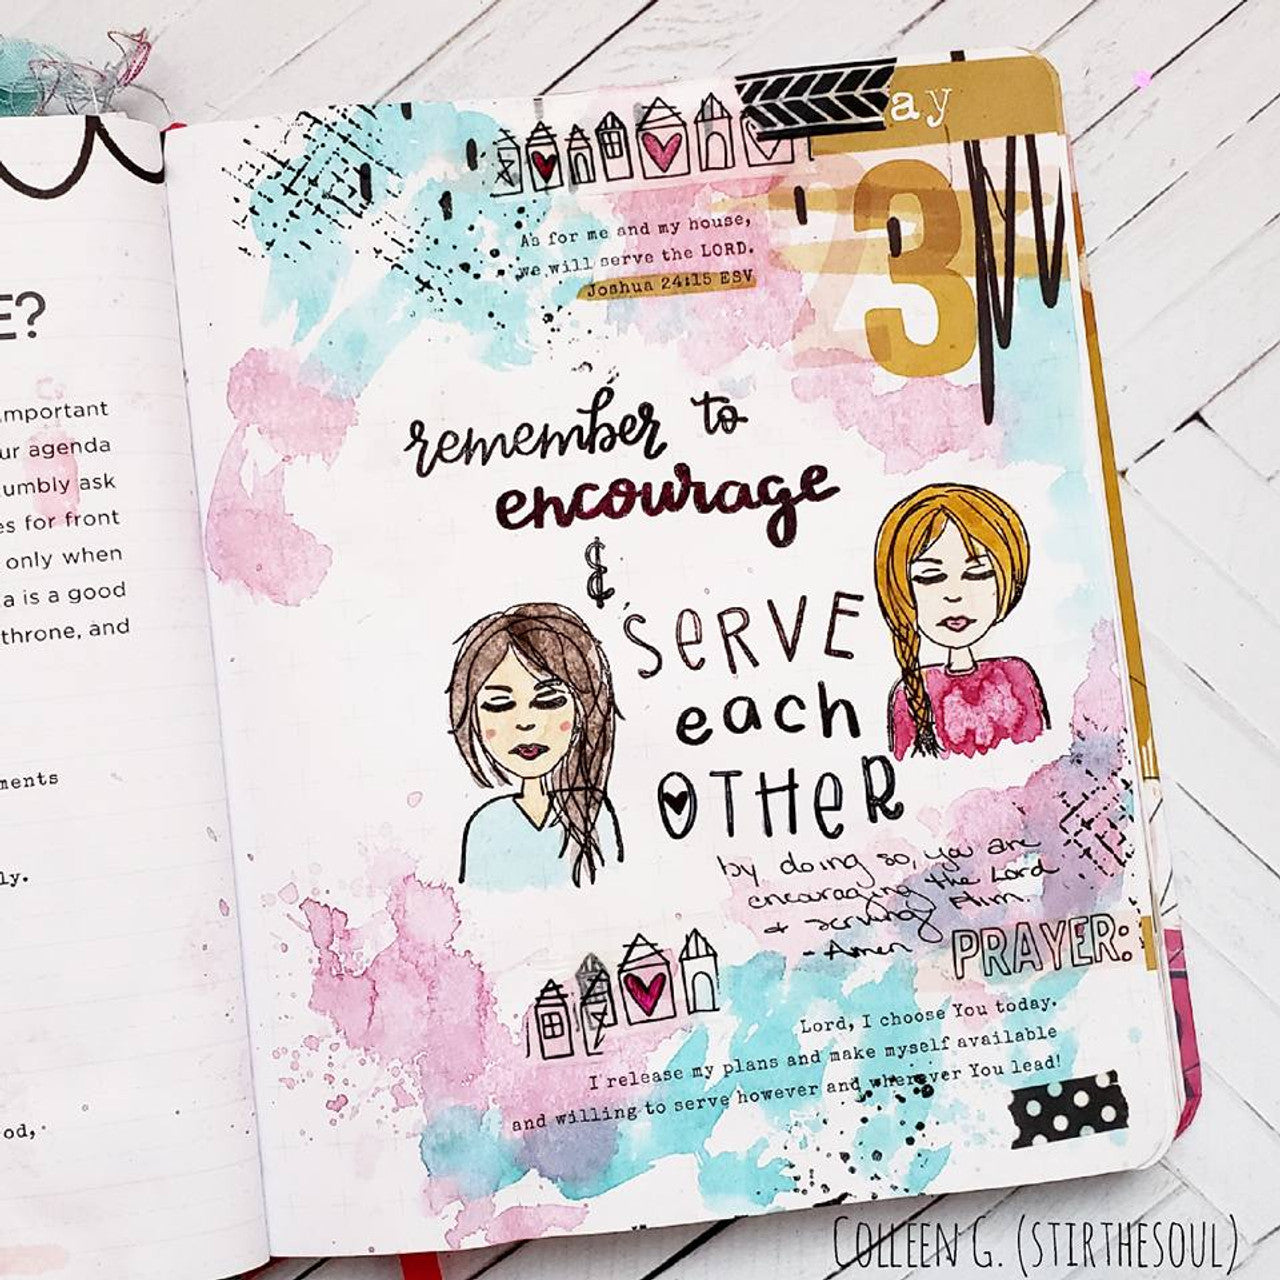 E?
mportant
ur agenda
umbly ask
es for front
only when
a is a good
throne, and
ments
ly.
od,
ay
23
As for me and my house,
we will serve the LORD.
Joshua 24:15 ESV
remember to
encourage
&
SeRVE
each
OTHeR
by doing so, you are
encouraging the Lord
+ serving Him.
- Amen
PRAYER:
Lord, I choose You today.
I release my plans and make myself available
and willing to serve however and wherever You lead!
COLLEEN G. (STIRTHESOUL)